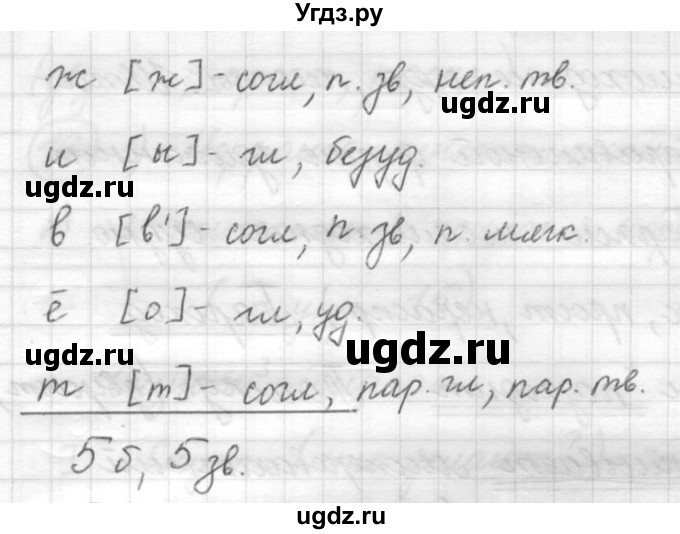 Угдз.ру
ж [ж] - согл, п. зв, неп. тв.
ugdz.ru
и [ы] - гл, безуд.
ugdz.ru
в [в'] - согл, п. зв, п. мягк.
ugdz.ru
ё [о] - гл, уд.
ugdz.ru
ugdz.ru
т [т] - согл, пар. гл, пар. тв.
5 б, 5 зв.
ugdz.ru